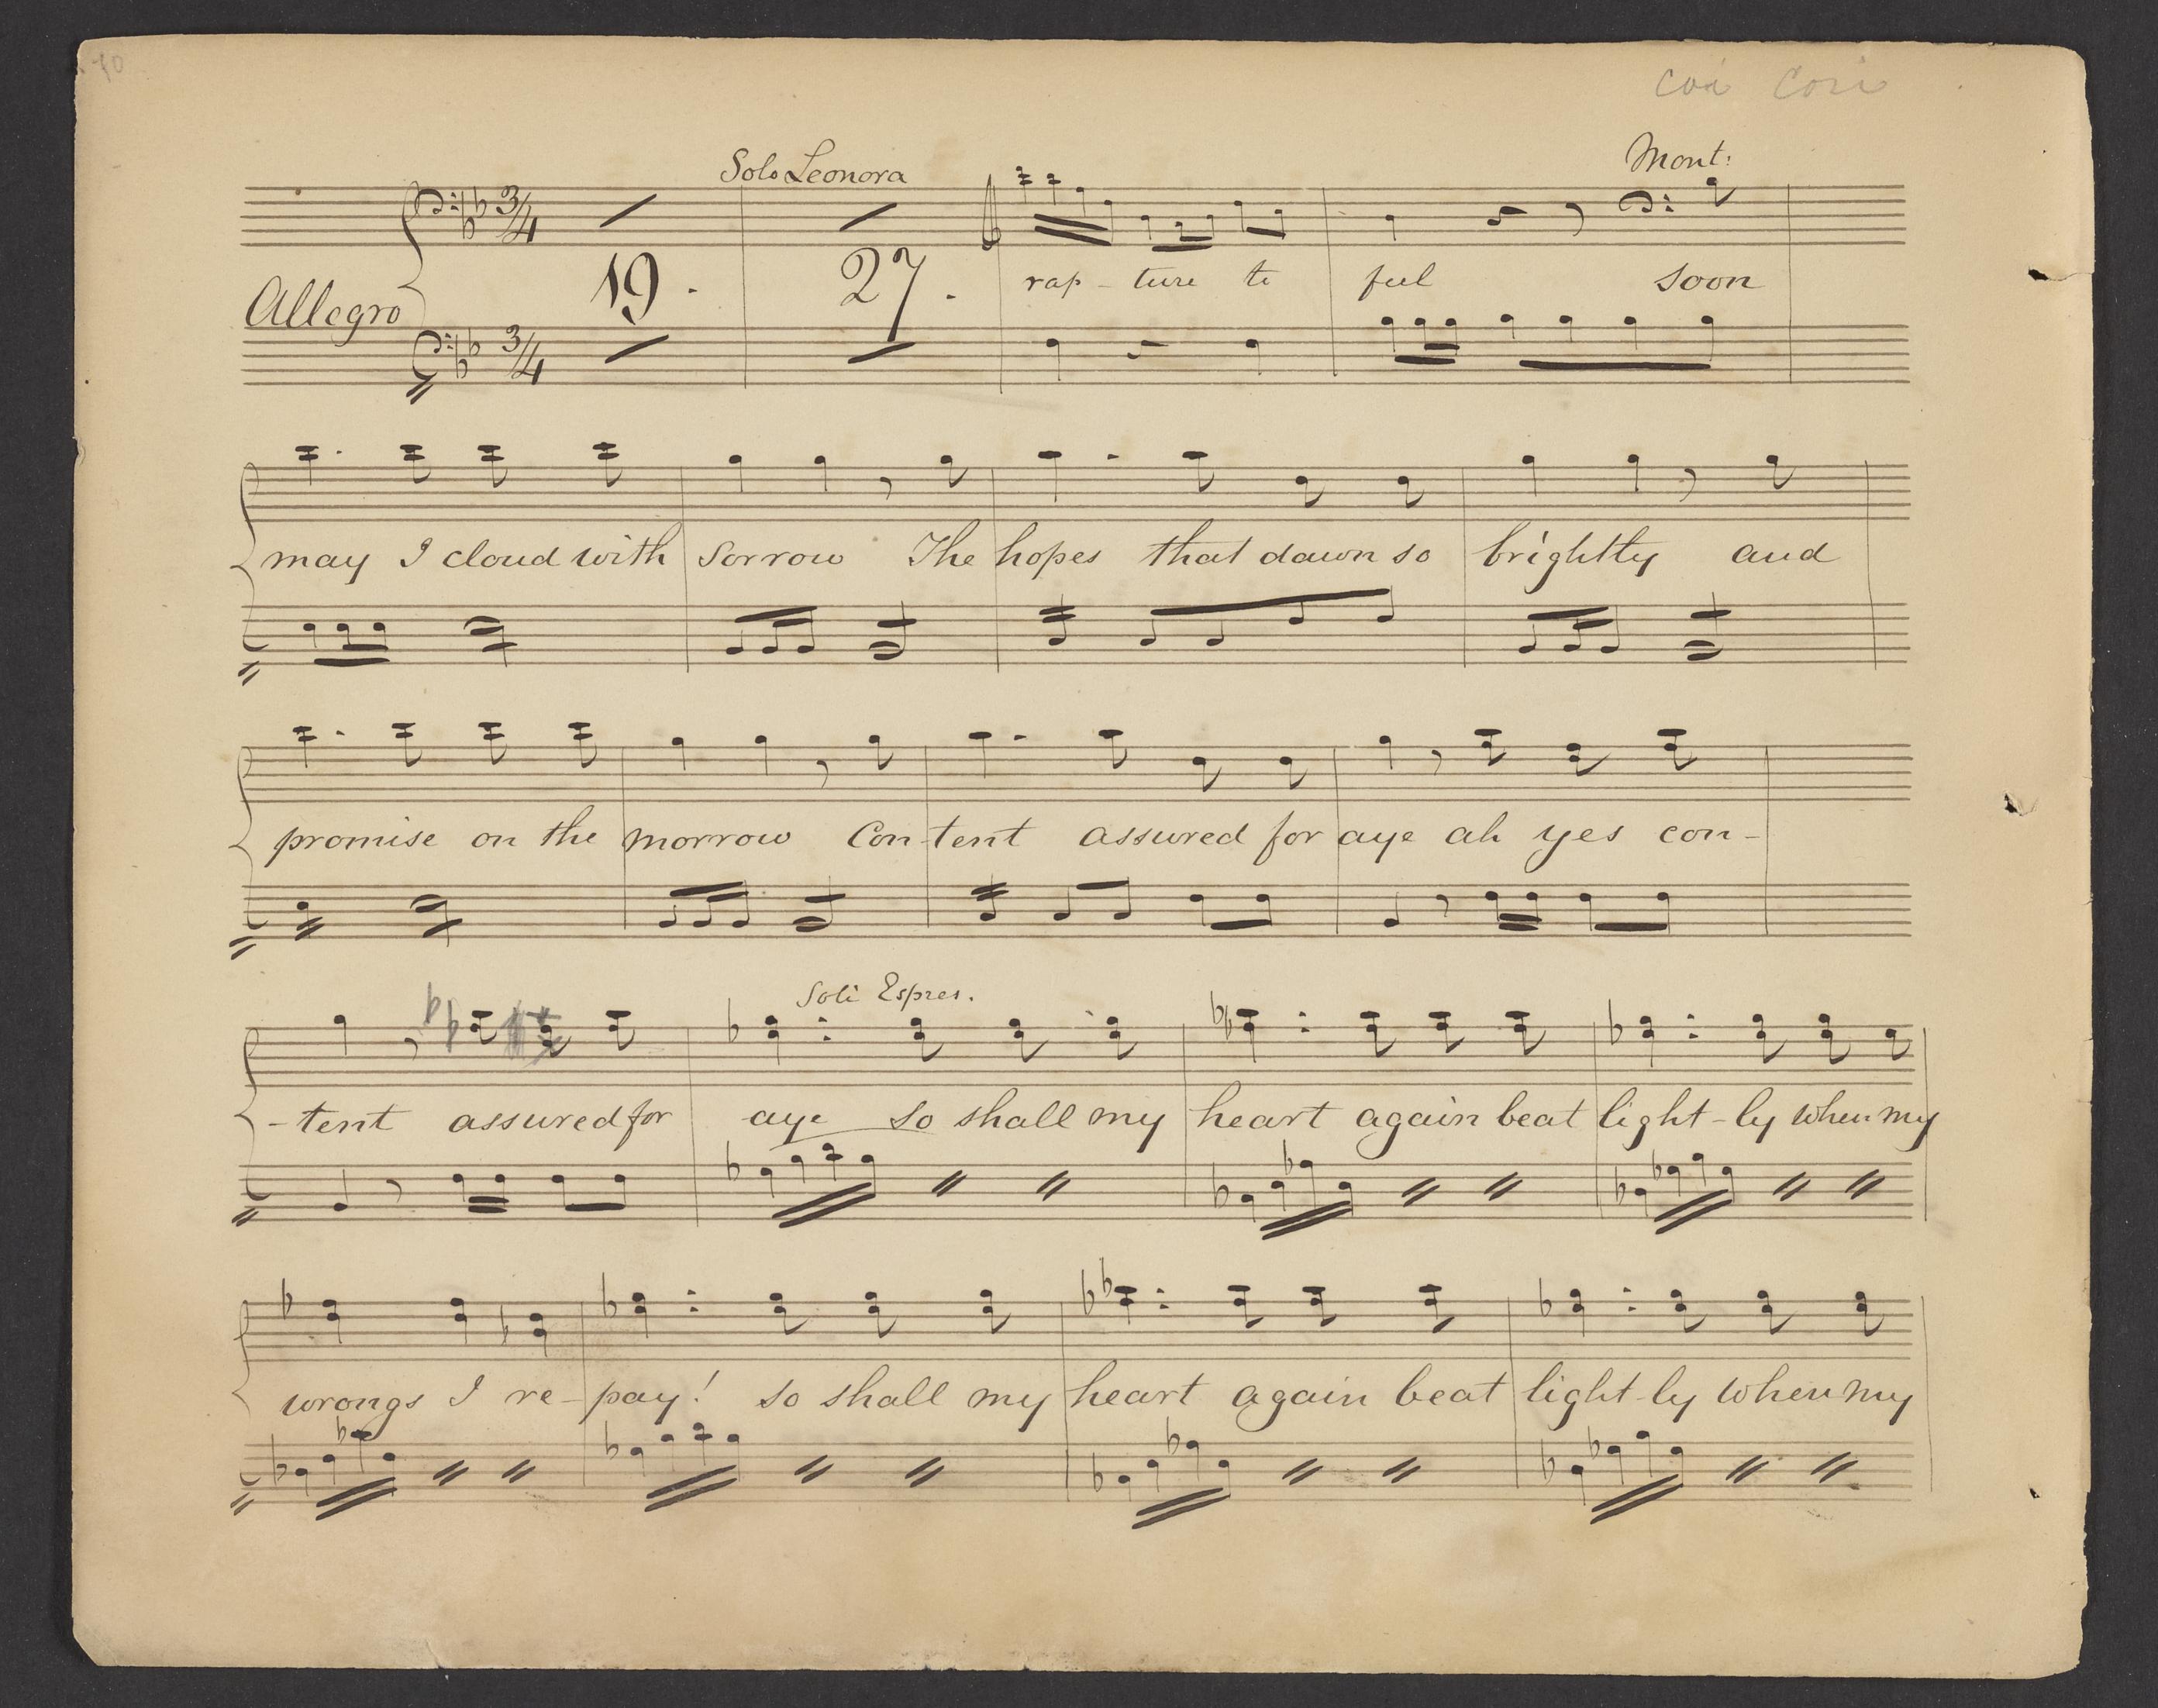 10
Cori Cori
Solo Leonora Mont:
3/4
Allegro 19. 27. rap - ture to feel soon
3/4
may I cloud with sorrow The hopes that dawn so brightly and
promise on the morrow Con - tent assured for aye ah yes con -
Soli Espres.
- tent assured for aye so shall my heart again beat light - ly when my
wrongs I re - pay! so shall my heart again beat light - ly when my